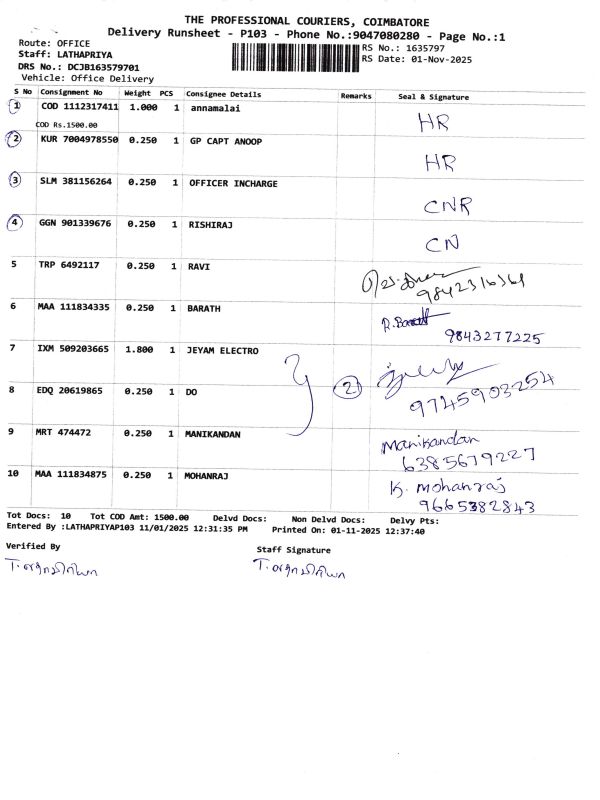 THE PROFESSIONAL COURIERS, COIMBATORE
Delivery Runsheet - P103 - Phone No.:9047080280 - Page No.:1
Route: OFFICE
RS No.: 1635797
Staff: LATHAPRIYA
RS Date: 01-Nov-2025
DRS No.: DCJB163579701
Vehicle: Office Delivery
S No Consignment No Weight PCS Consignee Details Remarks Seal & Signature
1 COD 1112317411 1.000 1 annamalai HR
COD Rs.1500.00
2 KUR 7004978550 0.250 1 GP CAPT ANOOP HR
3 SLM 381156264 0.250 1 OFFICER INCHARGE CNR
4 GGN 901339676 0.250 1 RISHIRAJ CN
5 TRP 6492117 0.250 1 RAVI
6 MAA 111834335 0.250 1 BARATH R.Barath
9843277225
7 IXM 509203665 1.800 1 JEYAM ELECTRO
8 EDQ 20619865 0.250 1 DO 2
9745903254
9 MRT 474472 0.250 1 MANIKANDAN Manikandan
6385679227
10 MAA 111834875 0.250 1 MOHANRAJ K. Mohanraj
9665382843
Tot Docs: 10 Tot COD Amt: 1500.00 Delvd Docs: Non Delvd Docs: Delvy Pts:
Entered By :LATHAPRIYAP103 11/01/2025 12:31:35 PM Printed On: 01-11-2025 12:37:40
Verified By Staff Signature